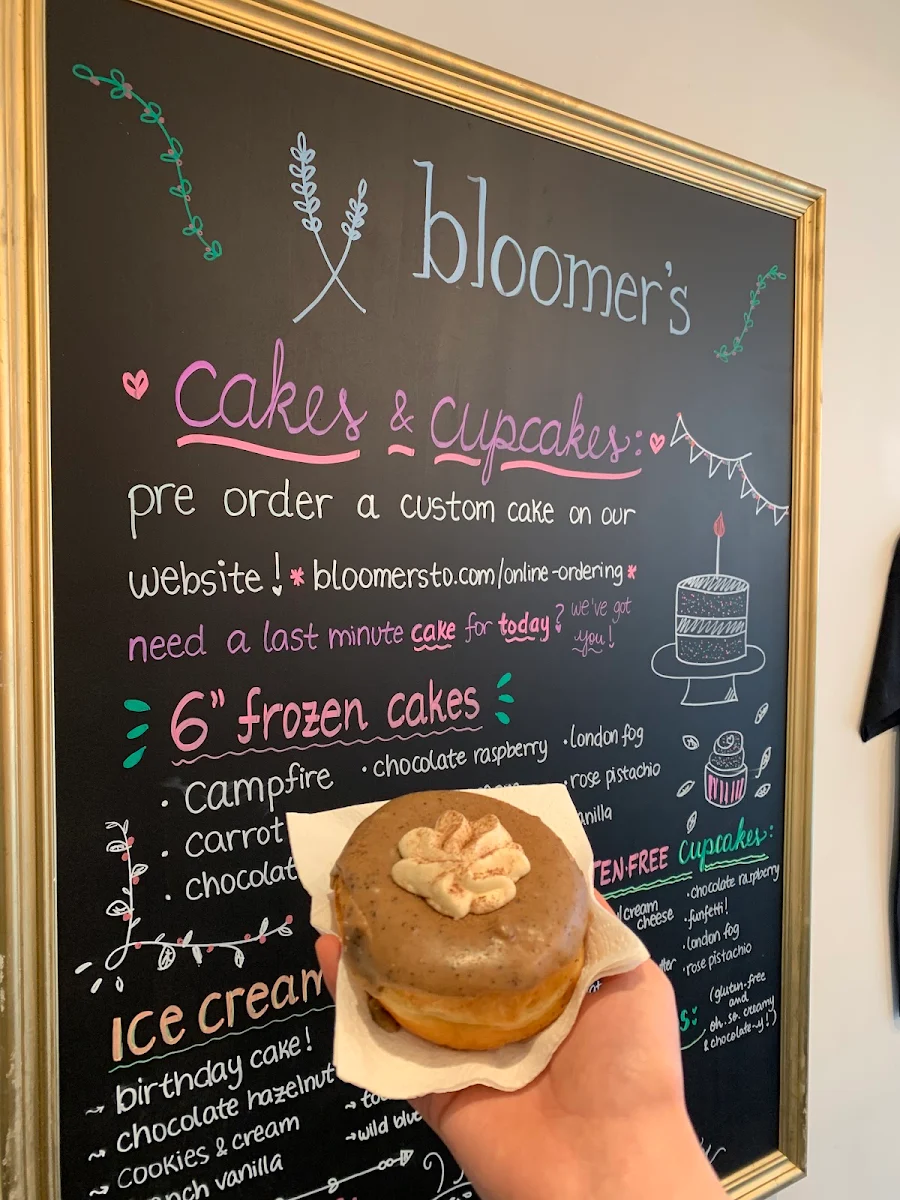 bloomer's
cakes & cupcakes:
pre order a custom cake on our
website! * bloomersto.com/online-ordering *
need a last minute cake for today? we've got
you!
6" frozen cakes
· campfire
· carrot
· chocolat
· chocolate raspberry
· london fog
· rose pistachio
anilla
TEN-FREE cupcakes:
cream
cheese
· chocolate raspberry
· funfetti!
· london fog
· rose pistachio
(gluten-free
and
oh, so, creamy
& chocolate-y!)
ice cream
→ birthday cake!
→ chocolate hazelnut
→ cookies & cream
nch vanilla
→ wild blue